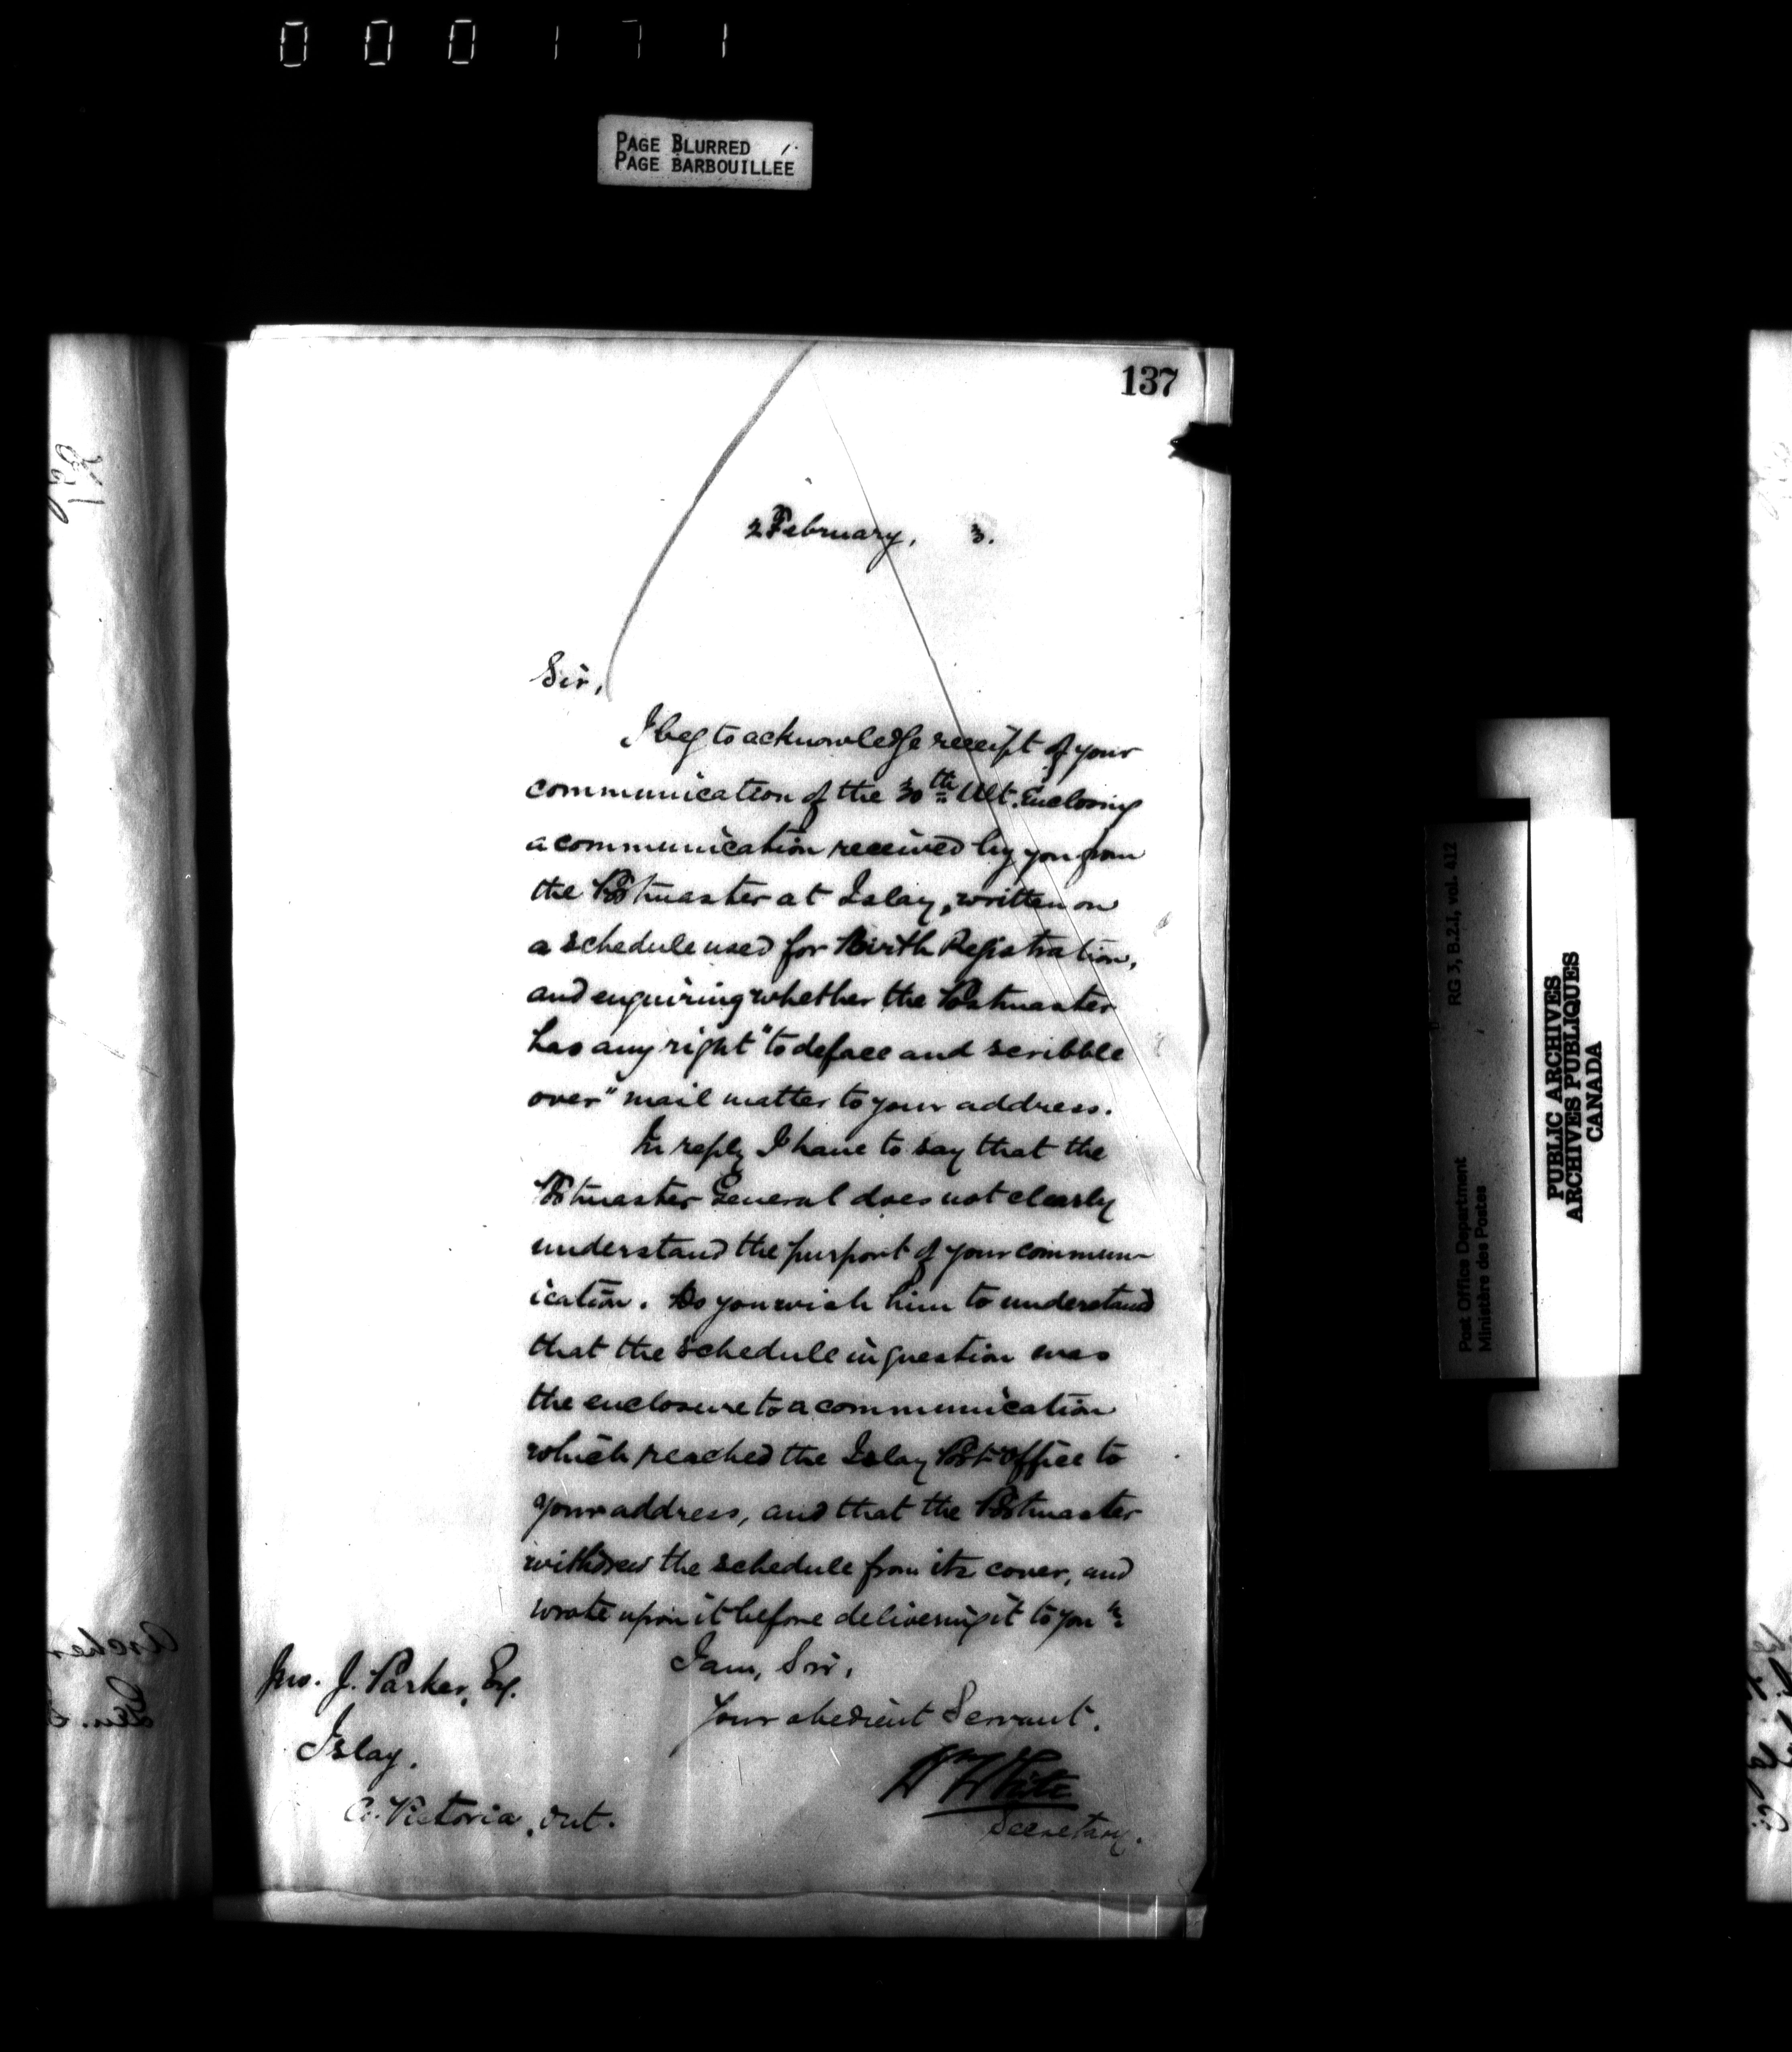 000171
PAGE BLURRED 1.
PAGE BARBOUILLEE
137
2 February, 3.
Sir,
I beg to acknowledge receipt of your
communication of the 30th Ult. Enclosing
a communication received by you from
the Postmaster at Islay, written on
a schedule used for Birth Registration,
and enquiring whether the Postmaster
has any right "to deface and scribble
over" mail matter to your address.
In reply I have to say that the
Postmaster General does not clearly
understand the purport of your commun-
ication. Do you wish him to understand
that the schedule in question was
the enclosure to a communication
which reached the Islay Post Office to
your address, and that the Postmaster
withdrew the schedule from its cover, and
wrote upon it before delivering it to you?
I am, Sir,
Your obedient Servant.
Wm White
Secretary.
Jno. J. Parker, Esq.
Islay.
Co. Victoria, Ont.
RG 3, B.2.1, vol. 412
Post Office Department
Ministère des Postes
PUBLIC ARCHIVES
ARCHIVES PUBLIQUES
CANADA